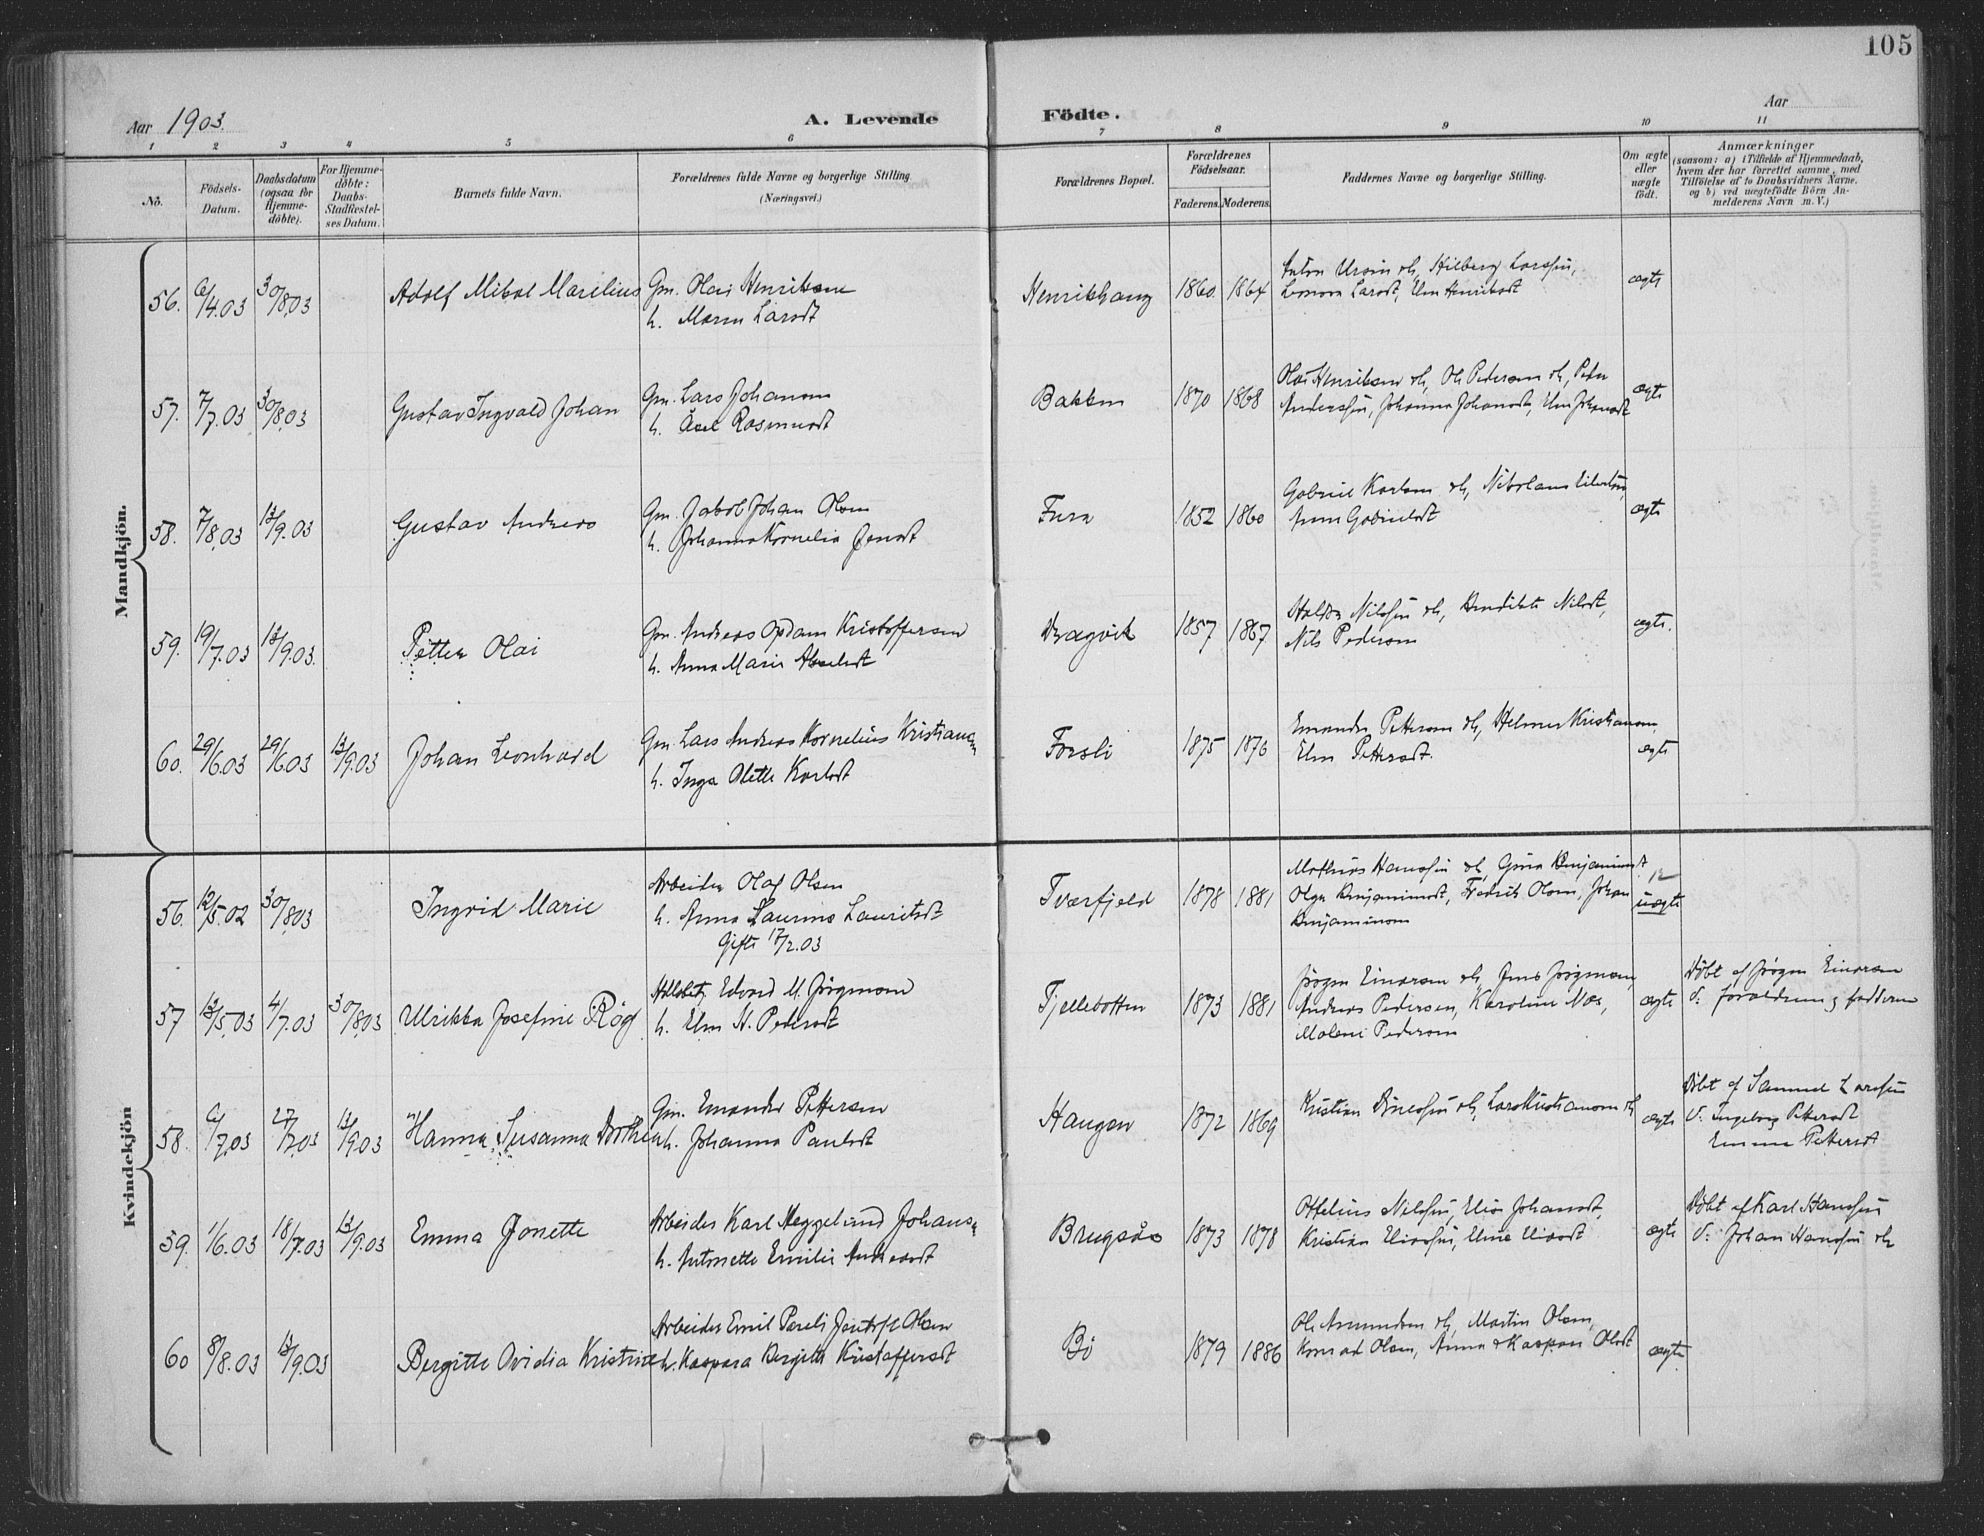 105
Aar 1903.
A. Levende Födte.
Aar
1 2 3 4 5 6 7 8 9 10 11
No.
Födsels-
Datum.
Daabsdatum
(ogsaa for
Hjemme-
döbte).
For Hjemme-
döbte:
Daabs-
Stadfæstel-
ses Datum.
Barnets fulde Navn.
Forældrenes fulde Navne og borgerlige Stilling.
(Næringsvei.)
Forældrenes Bopæl.
Forældrenes
Födselsaar.
Faderens. Moderens.
Faddernes Navne og borgerlige Stilling.
Om ægte
eller
uægte
født.
Anmærkninger
(saasom: a) i Tilfælde af Hjemmedaab,
hvem der har forrettet samme, med
Tilföielse af to Daabsvidners Navne,
og b) ved uægtefödte Börn An-
melderens Navn m. V.)
Mandkjön.
56. 6/4.03 30/8.03 Adolf Mikal Marelius
Gm. Olai Henriksen
h. Maren Larsdt
Henrikhaug 1860 1864
ægte
57. 7/7.03 30/8.03 Gustav Ingvald Johan
Gm. Lars Johansen
h. Rasmusdt
Bakken 1870 1868
Olai Henriksen Ole Pedersen Peder
Anderssen, Johanna Johansdt, Elen Johansdt
ægte
58. 7/8.03 13/9.03 Gustav Andreas
Gm. Jakob Johan Olsen
h. Johanna Kornelia Jensdt
Furu 1852 1860
Gabriel Karlsen
Anna Gabrielsdt
ægte
59. 19/7.03 13/9.03 Petter Olai
Gm. Andreas Kristoffersen
h. Anna Marie
Dragvik 1857 1867
Nilssen Nilsdt,
Nils Pedersen
ægte.
60. 29/6.03 29/6.03 13/9.03 Johan Leonhard
Gm. Lars Andreas Kornelius Kristiansen
h. Inga Olette Karlsdt
Forsli 1875 1876
Emander Pettersen Helmer Kristiansen,
Elen Pettersdt.
ægte
Kvindekjön
56. 12/5.02 30/8.03 Ingrid Marie
Arbeider Olaf Olsen
h. Anna Laurine Lauritsdt
Gifte 17/2.03
Tværfjeld 1878 1881
Mathias Hanssen Gina Benjaminsdt,
Olga Benjaminsdt, Fredrik Olsen, Johan
Benjaminsen
uægte
57 13/5.03 4/7.03 30/8.03 Ulrikka Josefine Røgh
Edvard M. Jörgensen
h. Elen N. Pedersdt
Fjellebotten 1873 1881
Jörgen Einarsen Jens Jörgensen,
Andreas Pedersen, Karoline Næs,
Malene Pedersen
ægte
Döbt af Jörgen Einarsen
V: forældrene og fadderne
58. 6/7.03 27/7.03 13/9.03 Hanna Susanna Dorthea
Gm. Emander Pettersen
h. Johanna Paulsdt
Haugen 1872 1869
Kristian Lars Kristiansen
ægte
Döbt af Samuel Larssen
V. Ingeborg Pettersdt
Emma Pettersdt
59. 1/6.03 18/7.03 13/9.03 Emma Jonette
Arbeider Karl Heggelund Johansen
h. Antonette Emilie Andreasdt
Brugsås 1873 1878
Ottelius Nilssen, Johansdt,
Kristian Eliassen, Eliasdt
ægte
Döbt af Karl Hanssen
V: Johan Hanssen
60 8/8.03 13/9.03 Bergitte Ovidia Kristine
Arbeider Emil Olsen
h. Kaspara Bergitte Kristoffersdt
Bö 1879 1886
Ole Amundsen Martin Olsen,
Konrad Olsen, Anna & Kaspara Olsdt
ægte